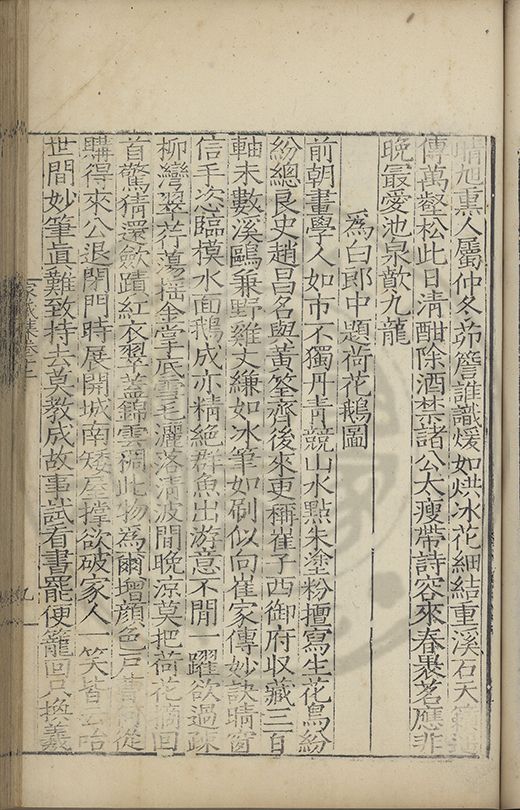 晴旭熏人屬仲冬茆簷誰識煖如烘冰花細結重溪石天籟遥
傳萬壑松此日清酣除酒禁諸公太瘦帶詩容來春裹茗應非
晚最愛池泉歕九龍
爲白郎中題荷花鵝圖
前朝畫學人如市不獨丹青競山水點朱塗粉擅寫生花鳥紛
紛總良史趙昌名與黃筌齊後來更稱崔子西御府收藏三百
軸未數溪鷗兼野雞丈縑如冰筆如刷似向崔家傳妙訣晴窗
信手恣臨模水面鵝成亦精絶群魚出游意不閒一躍欲過疎
柳灣翠荇蕩揺金掌底雪毛灑落清波間晚涼莫把荷花摘回
首驚猜還斂蹟紅衣翠葢錦雲稠此物爲爾增顔色戸曹從
購得來公退閉門時展開城南矮屋撑欲破家人一笑皆云咍
世間妙筆真難致持去莫教成故事試看書罷便籠回只換義